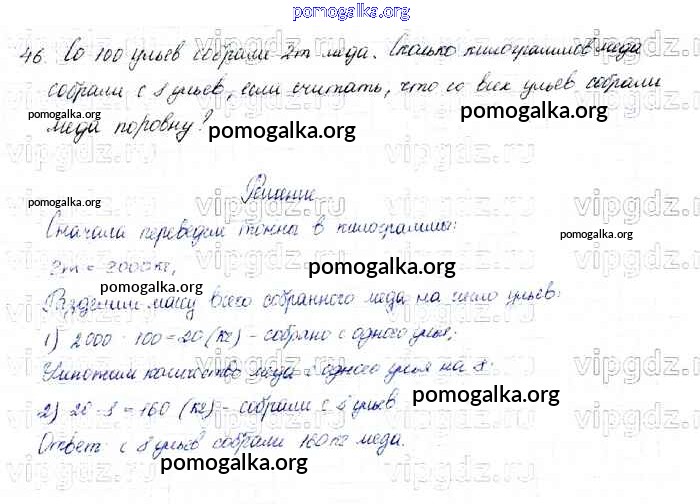 pomogalka.org
46. Со 100 ульев собрали 2т меда. Сколько килограммов меда
собрали с 8 ульев, если считать, что со всех ульев собрали
меда поровну?
pomogalka.org
pomogalka.org
vipgdz.ru
vipgdz.ru
pomogalka.org
Решение
vipgdz.ru
vipgdz.ru
Сначала переведем тонны в килограммы:
pomogalka.org
2т = 2000кг,
pomogalka.org
pomogalka.org
Разделим массу всего собранного меда на число ульев:
1) 2000 : 100 = 20 (кг) - собрано с одного улья;
Умножим количество меда с одного улья на 8.
pomogalka.org
2) 20 · 8 = 160 (кг) - собрали с 8 ульев
Ответ: с 8 ульев собрали 160 кг меда.
pomogalka.org
pomogalka.org